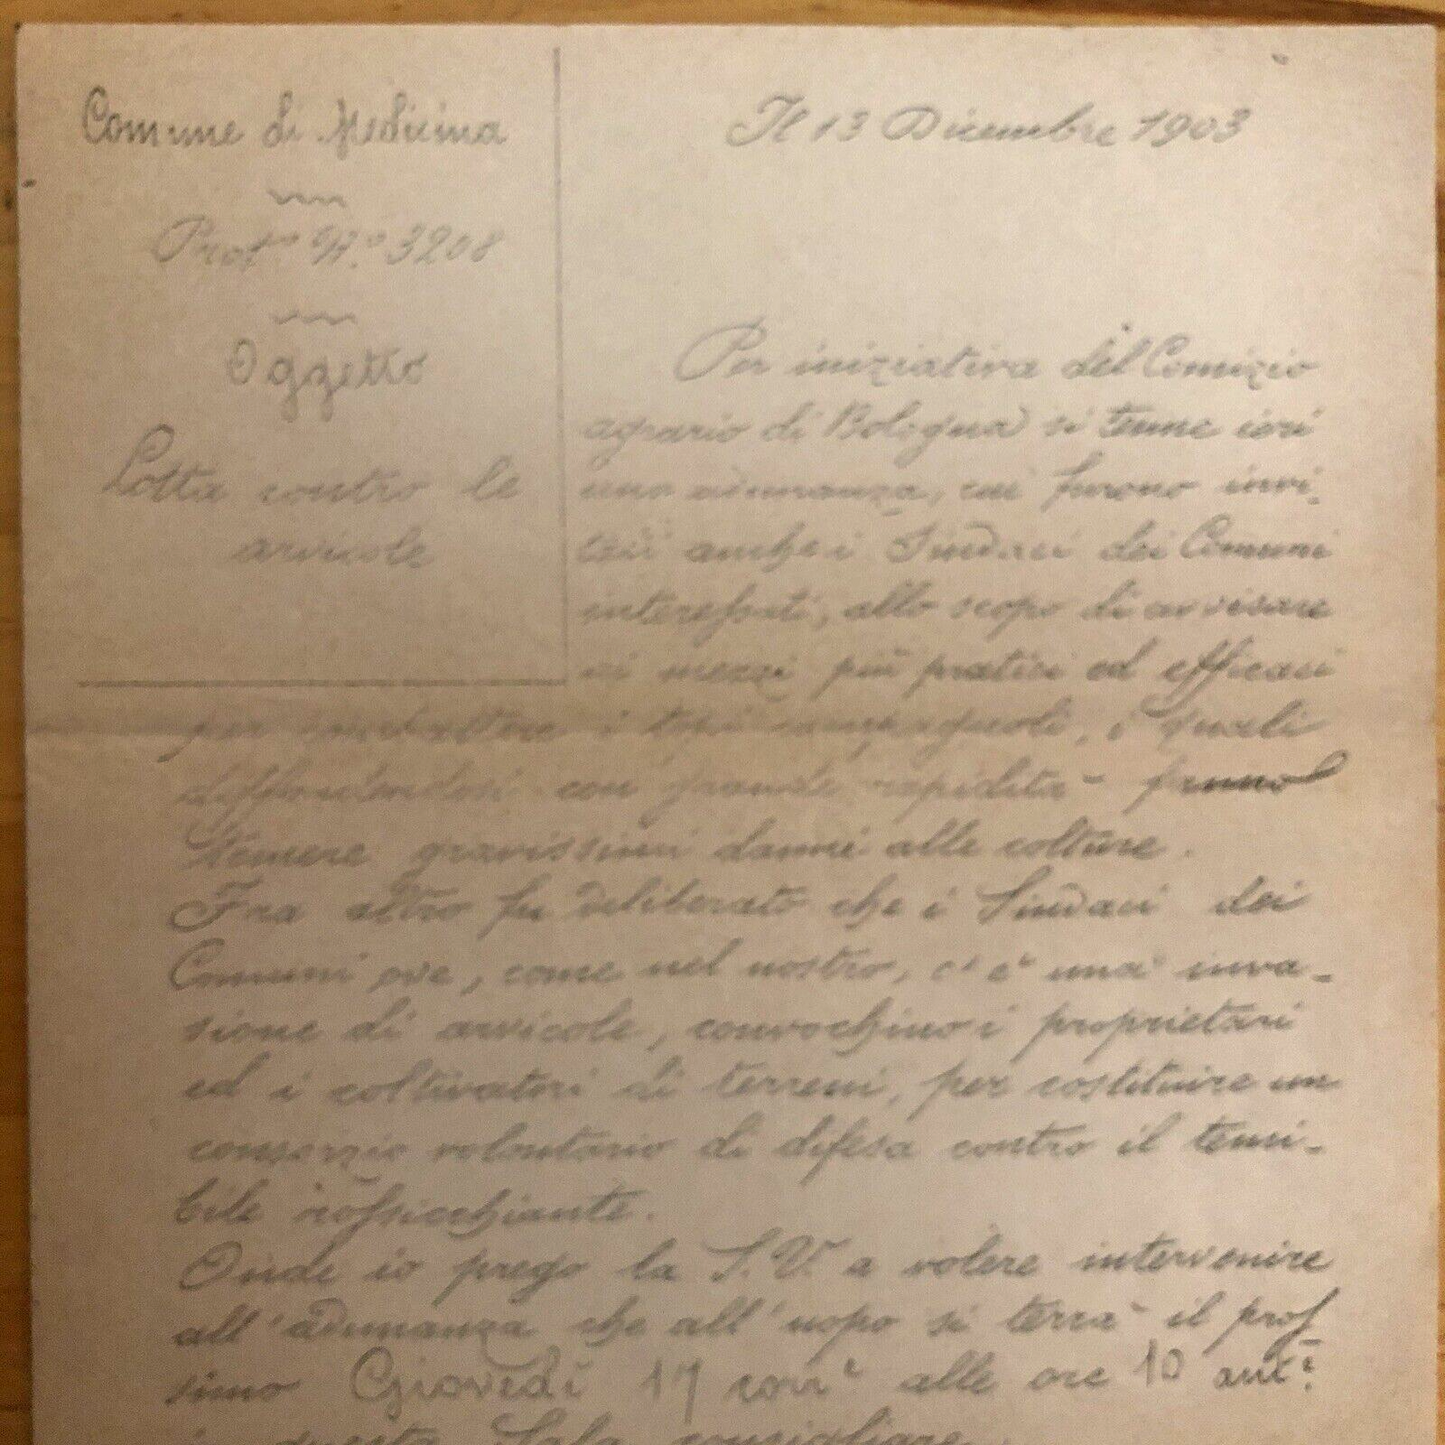 Comune di Medicina
Prot.º N.º 3208
Oggetto
Lotta contro le
arvicole
Il 13 Dicembre 1903
Per iniziativa del Comizio
agrario di Bologna si tenne ieri
una adunanza, cui furono invi-
tati anche i Sindaci dei Comuni
interessati, allo scopo di avvisare
ai mezzi più pratici ed efficaci
per combattere i topi campagnoli, i quali
diffondendosi con grande rapidità fanno
temere gravissimi danni alle colture.
Fra altro fu deliberato che i Sindaci dei
Comuni ove, come nel nostro, c'è una inva-
sione di arvicole, convochino i proprietari
ed i coltivatori di terreni, per costituire un
consorzio volontario di difesa contro il terri-
bile rossicchiante.
Onde io prego la S.V. a volere intervenire
all'adunanza che all'uopo si terrà il pros
simo Giovedì 17 corr.e alle ore 10 ant.i
in questa Sala consigliare.